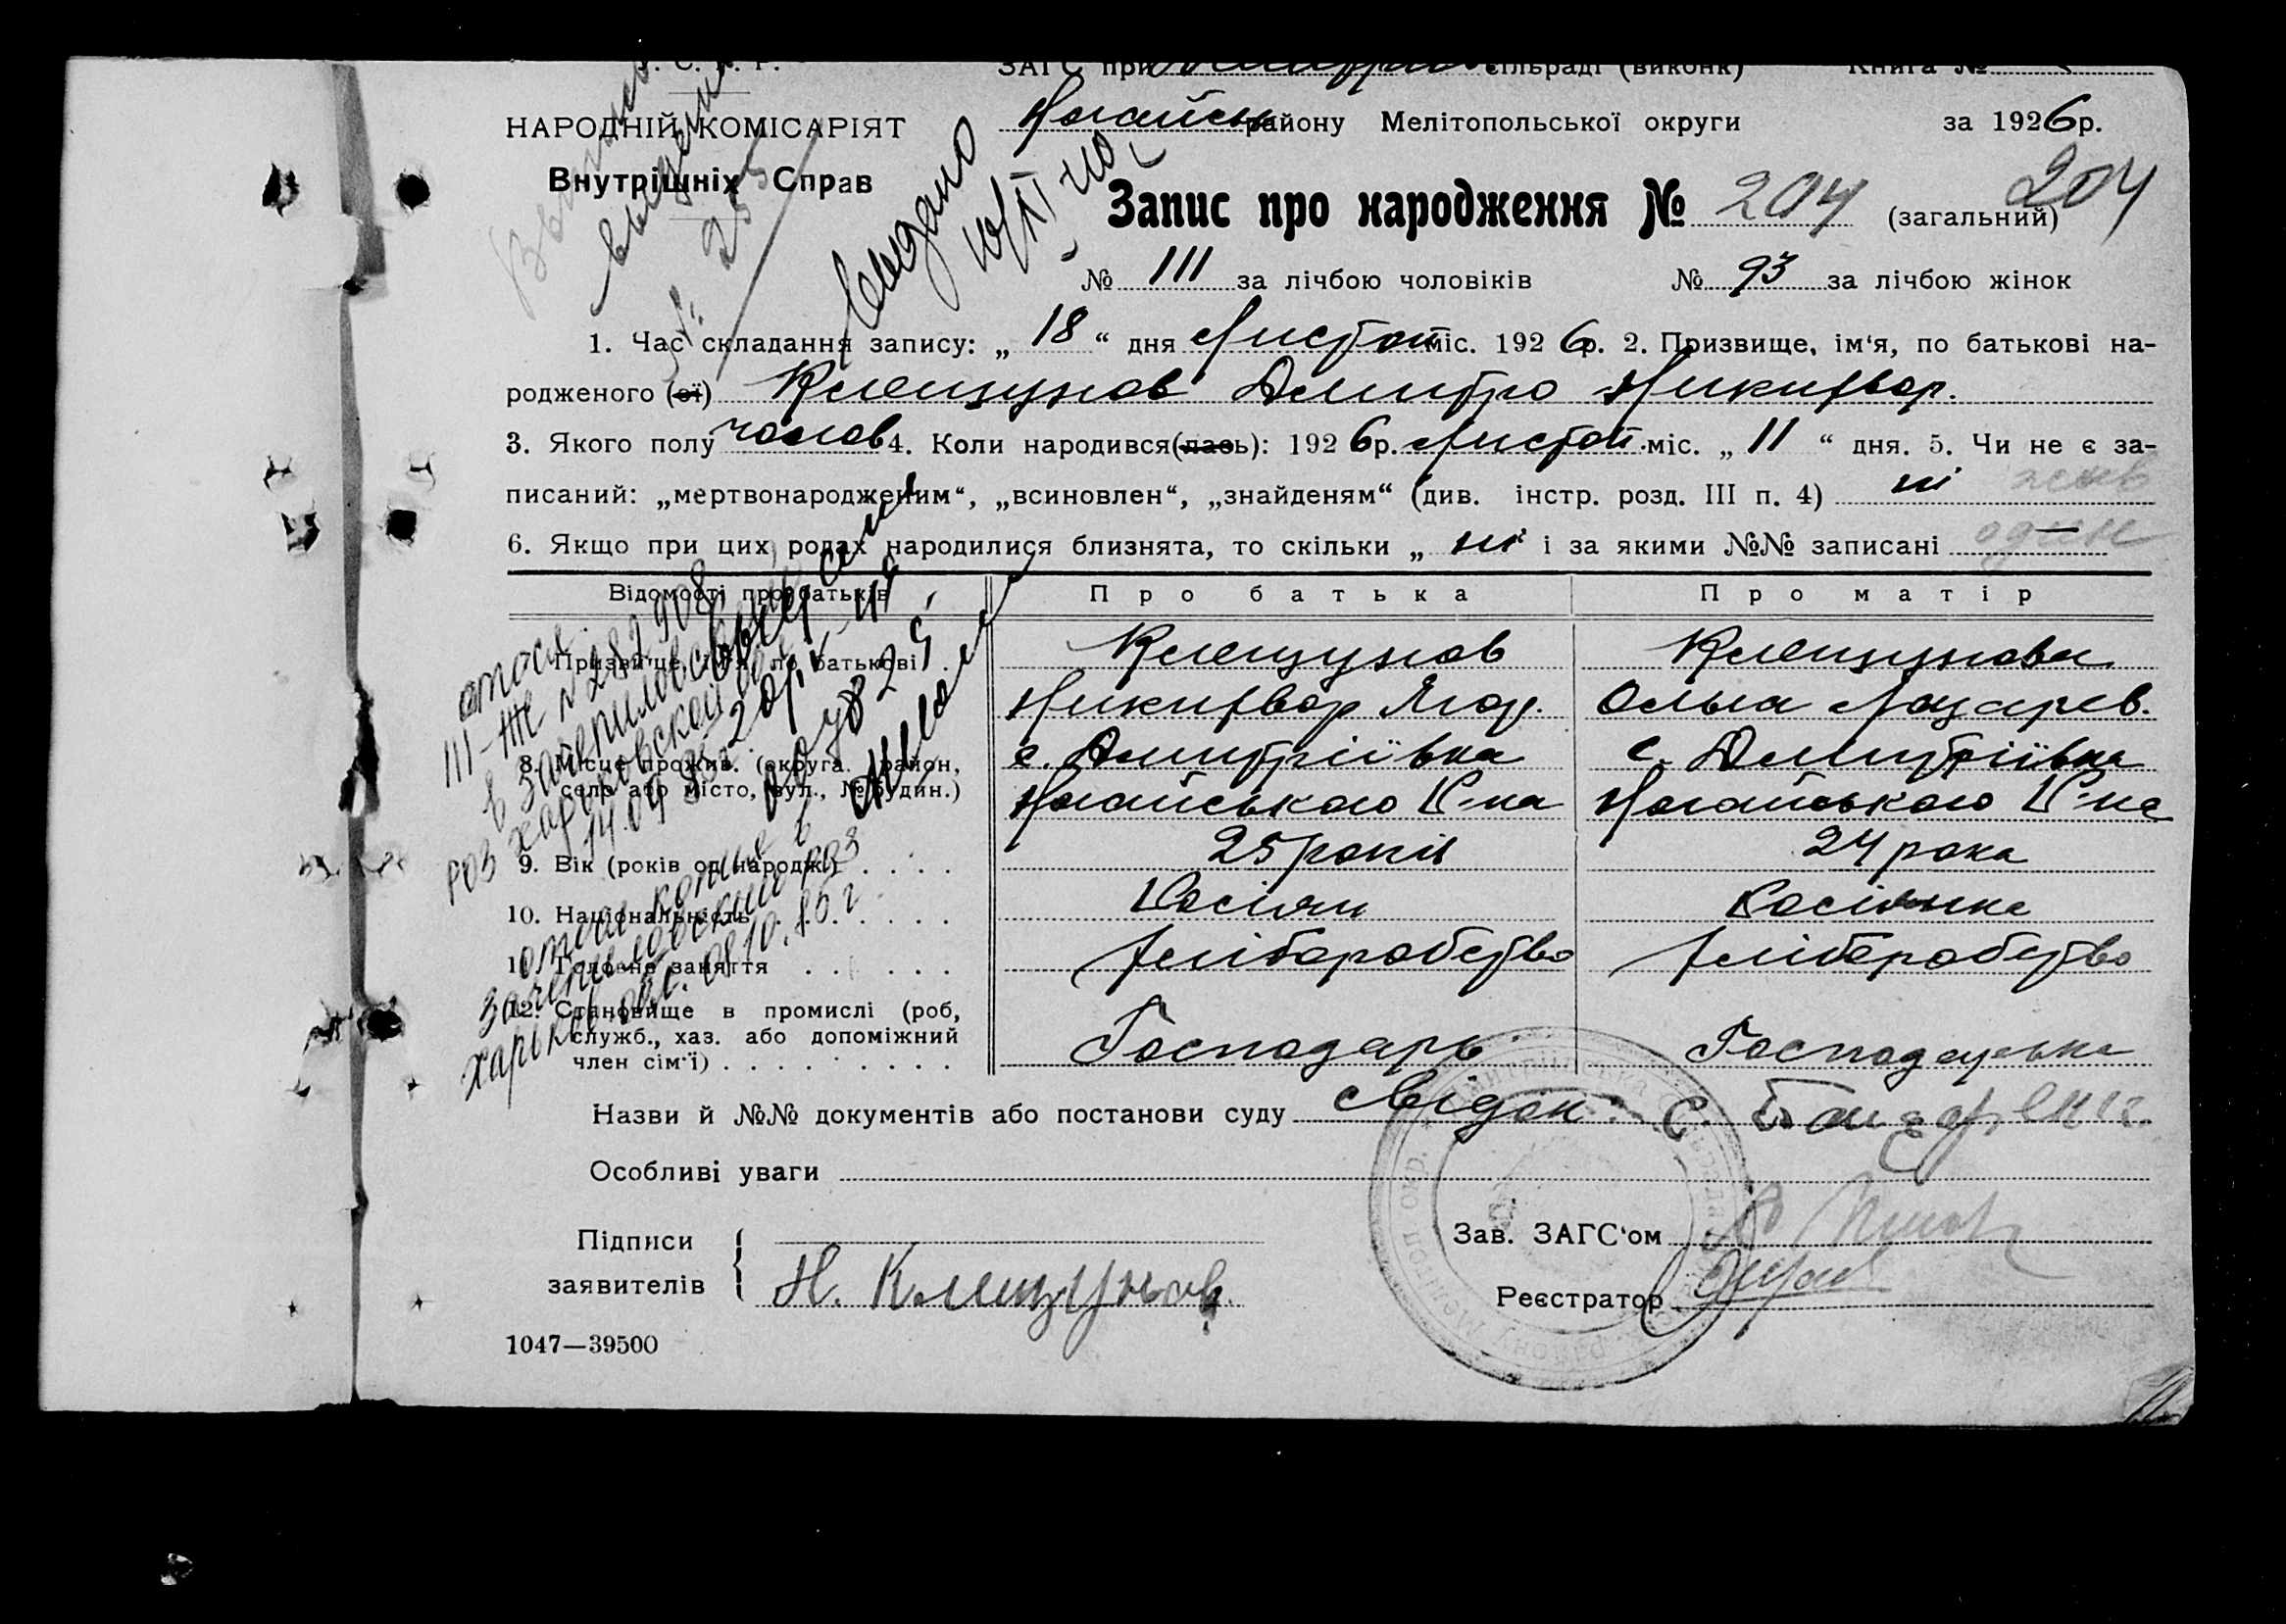 ЗАГС при сільраді (виконк) Книга №
НАРОДНІЙ КОМІСАРІЯТ
Внутрішніх Справ
Ногайськ району Мелітопольської округи за 1926р.
Видано
Запис про народження № 204 (загальний) 204
№ 111 за лічбою чоловіків № 93 за лічбою жінок
1. Час складання запису: „ 18 “ дня Листоп міс. 1926р. 2. Призвище, ім‘я, по батькові на-
родженого (ої) Клещунов Дмитро Никифвор.
3. Якого полу чолов 4. Коли народився(лась): 1926р. Листоп. міс. „ 11 “ дня. 5. Чи не є за-
писаний: „мертвонародженим“, „всиновлен“, „знайденям“ (див. інстр. розд. III п. 4) ні
6. Якщо при цих родах народилися близнята, то скільки „ ні і за якими №№ записані один
Відомості про батьків Про батька Про матір
Призвище, ім‘я, по батькові Клещунов Клещунова
Никифвор Ольга Лазарев.
8. Місце прожив. (округа, район, с. Дмитріївка с. Дмитріївка
село або місто, вул., № будин.) Ногайського Р-на Ногайського Р-на
9. Вік (років од народж.) 25 років 24 рока
10. Національність Росіян Росіянка
11. Головне заняття Хліборобство Хліборобство
12. Становище в промислі (роб,
служб., хаз. або допоміжний
член сім‘ї) Господарь Господарька
Назви й №№ документів або постанови суду Свідок: С. Бондаренк
Особливі уваги
Підписи
заявителів Н. Клещунов
Зав. ЗАГС‘ом
Реєстратор
1047—39500
отосл.
III-ЖС № 282908
в Зачепиловский
РОЗ Харьковской обл
14.09.95г.
отосл копия в
Зачепиловский роз
Харьков. обл. 08.10.85г